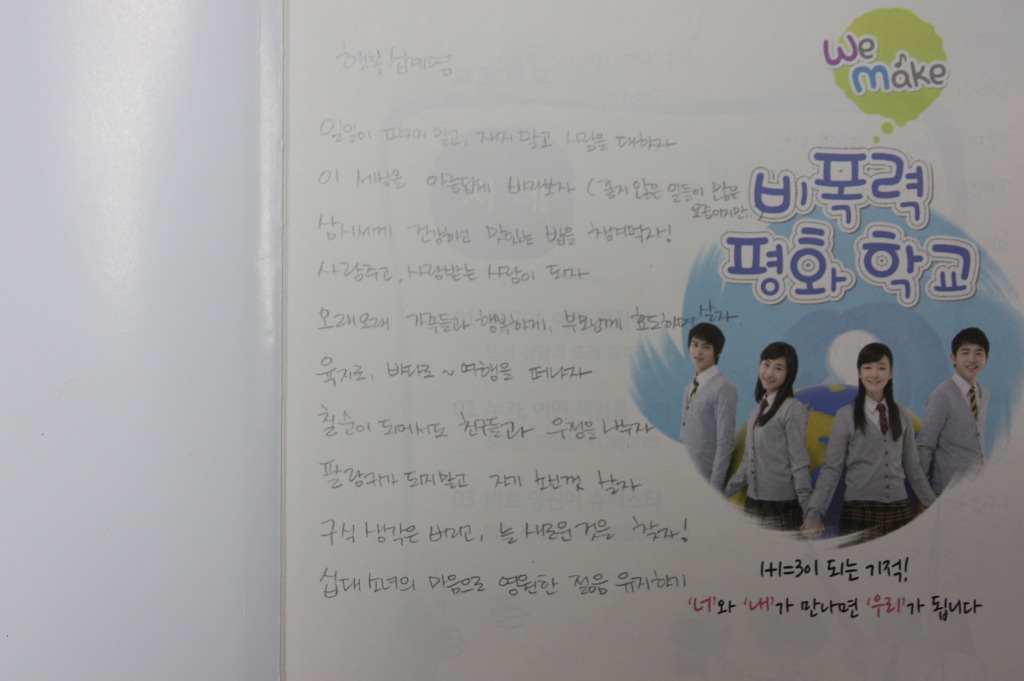 행복 십계명
일일이 따지지 말고, 재지 말고 사람을 대하자
이 세상을 아름답게 바라보자 (좋지 않은 일들이 많은
요즘이지만..)
삼시세끼 건강하고 맛있는 밥을 챙겨먹자!
사랑주고, 사랑받는 사람이 되자
오래오래 가족들과 행복하게, 부모님께 효도하며 살자
육지로, 바다로~ 여행을 떠나자
칠순이 되어서도 친구들과 우정을 나누자
팔랑귀가 되지말고 자기 소신껏 살자
구식 생각은 버리고, 늘 새로운 것을 찾자!
십대 소녀의 마음으로 영원한 젊음 유지하기
We
make
비폭력
평화 학교
1+1=3이 되는 기적!
'너'와 '내'가 만나면 '우리'가 됩니다